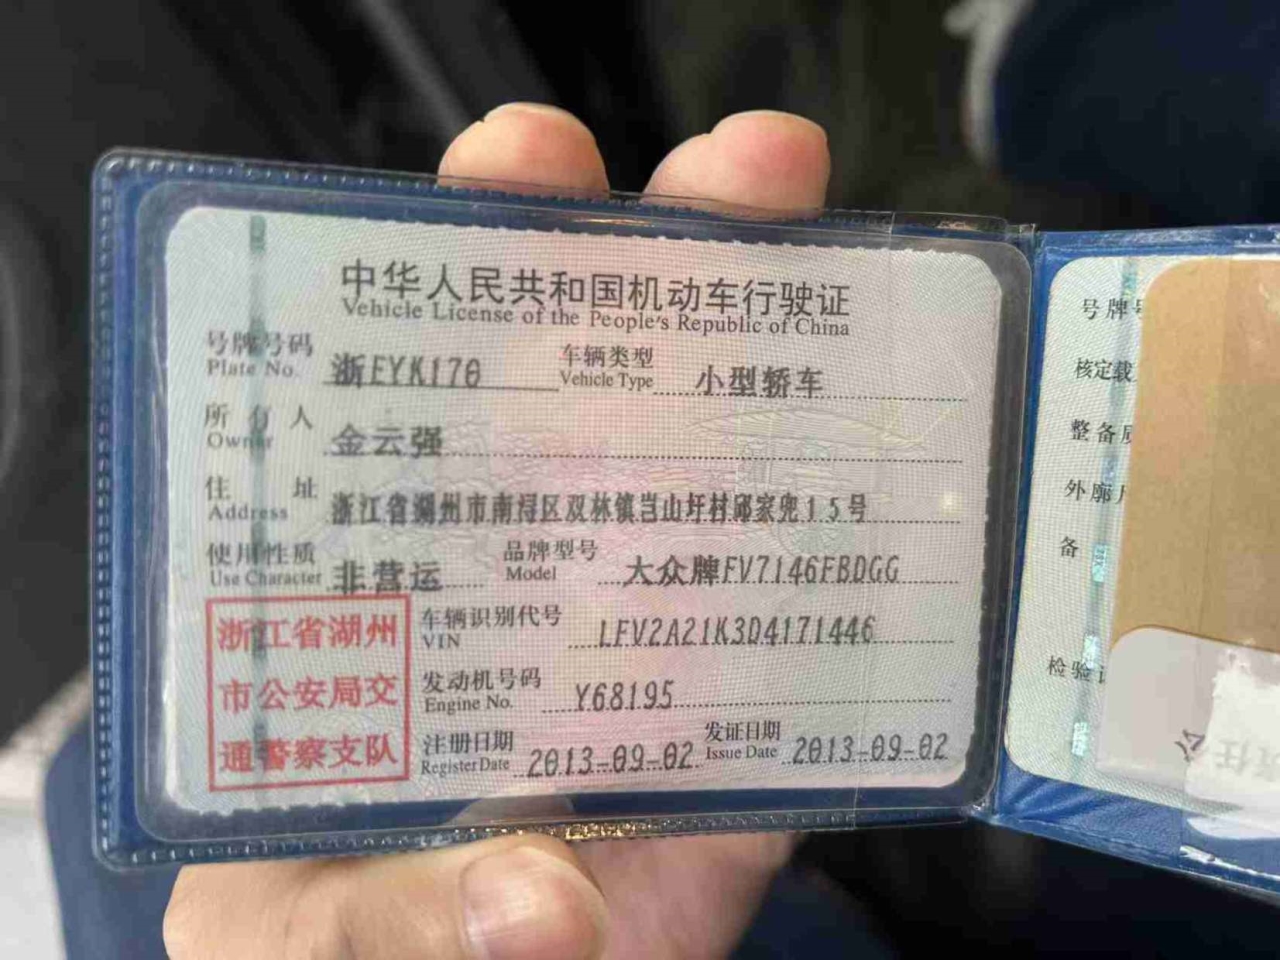 中华人民共和国机动车行驶证
Vehicle License of the People's Republic of China
号牌号码 浙EYK170 车辆类型 小型轿车
Plate No. Vehicle Type
所有人 金云强
Owner
住址 浙江省湖州市南浔区双林镇岂山圩村邱家兜15号
Address
使用性质 非营运 品牌型号 大众牌FV7146FBDGG
Use Character Model
浙江省湖州
市公安局交
通警察支队
车辆识别代号 LFV2A21K3D4171446
VIN
发动机号码 Y68195
Engine No.
注册日期 2013-09-02 发证日期 2013-09-02
Register Date Issue Date
号牌号
核定载
整备质
外廓尺
备
检验